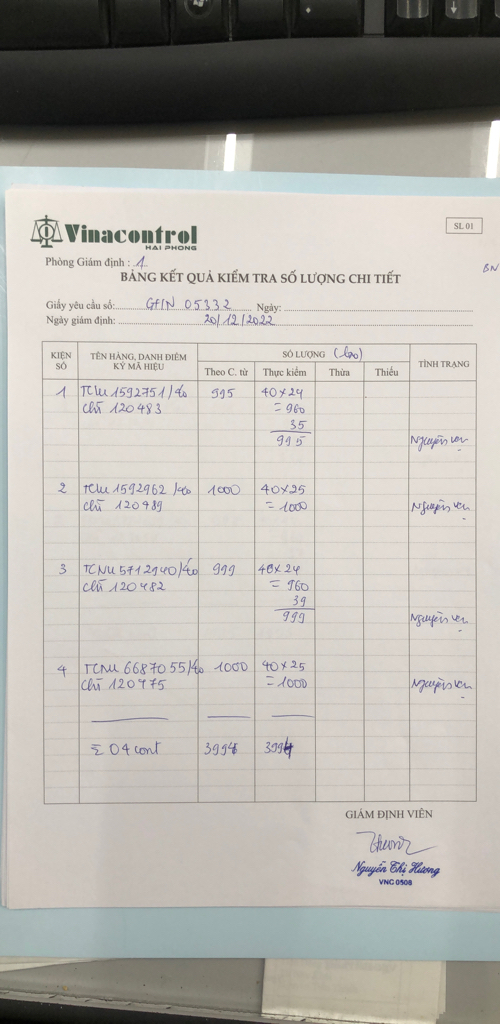 SL 01
Vinacontrol
HẢI PHÒNG
Phòng Giám định : 1
BN
BẢNG KẾT QUẢ KIỂM TRA SỐ LƯỢNG CHI TIẾT
Giấy yêu cầu số: GFIN 05332 Ngày:
Ngày giám định: 20/12/2022
KIỆN SỐ TÊN HÀNG, DANH ĐIỂM KÝ MÃ HIỆU SỐ LƯỢNG (bao) TÌNH TRẠNG
Theo C. từ Thực kiểm Thừa Thiếu
1 TCLU 1592751/40 995 40x24
chì 120483 = 960
35
995 Nguyên vẹn
2 TCLU 1592962/40 1000 40x25
chì 120489 = 1000 Nguyên vẹn
3 TCNU 5712940/40 999 40x24
chì 120482 = 960
39
999 Nguyên vẹn
4 TCNU 6687055/40 1000 40x25
chì 120475 = 1000 Nguyên vẹn
Σ 04 cont 3994 3994
GIÁM ĐỊNH VIÊN
Nguyễn Thị Hương
VNC 0508